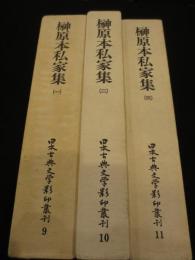 榊原本私家集
(一)
日本古典文学影印叢刊
9
榊原本私家集
(二)
日本古典文学影印叢刊
10
榊原本私家集
(三)
日本古典文学影印叢刊
11